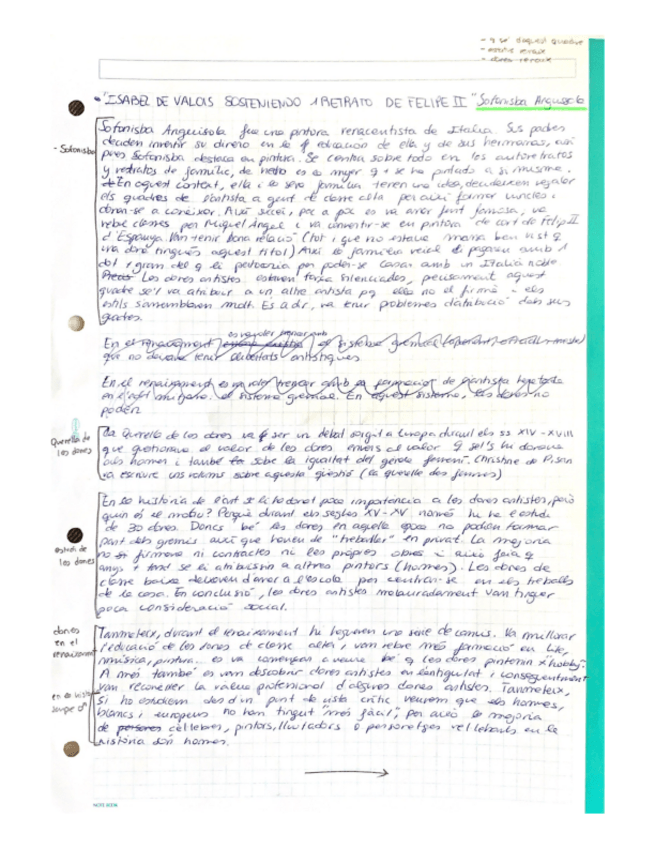 - q se d'aquest quadre
"ISABEL DE VALOIS SOSTENIENDO 1 RETRATO DE FELIPE II" Sofonisba Anguissola
- Sofonisba
Sofonisba Anguissola fue una pintora renacentista de Italia. Sus padres
deciden invertir su dinero en la educación de ella y de sus hermanas, así
pues Sofonisba destaca en pintura. Se centra sobre todo en los autoretratos
y retratos de familia, de hecho es la mujer q + se ha pintado a si misma.
En aquest context, ella i la seva familia tenen una idea, decideixen regalar
els quadres de l'artista a gent de classe alta per així formar vincles i
donar-se a conèixer. Així succei, poc a poc es va anar fent famosa, va
rebre classes per Miquel Àngel i va convertir-se en pintora de cort de Felip II
d'Espanya. Van tenir bona relació (tot i que no estava massa ben vist q
una dona tingués aquest títol) Així la família reial li pagaren amb 1
dot i gran del q li pertocaria per poder-se casar amb un Italià noble.
Les dones artistes estaven força silenciades, precisament aquest
quadre se'l va atribuir a un altre artista pq ella no el firmà i els
estils s'assemblaven molt. Es a dir, va tenir problemes d'atribució dels seus
quadres.
En el renaixement el sistema gremial
que no deixava tenir llibertats artístiques
En el renaixement es va voler trencar amb la formació de l'artista
el sistema gremial. En aquest sistema, les dones no
poden
Querella de
les dones
La Querella de les dones va ser un debat sorgit a Europa durant els ss XIV - XVIII
que qüestionava el valor de les dones envers al valor q se'ls hi donava
als homes i també sobre la igualtat del gènere femení. Christine de Pisan
va escriure uns volums sobre aquesta qüestió (la querelle des femmes)
estudi de
les dones
En la història de l'art se li ha donat poca importància a les dones artistes, però
quin és el motiu? Perquè durant els segles XV-XV només hi ha l'estudi
de 30 dones. Doncs bé les dones en aquella època no podien formar
part dels gremis així que havien de "treballar" en privat. La majoria
no firmava ni contractes ni les pròpies obres i això feia q
anys + tard se li atribuissin a altres pintors (homes). Les dones de
classe baixa deixaven d'anar a l'escola per centrar-se en els treballs
de la casa. En conclusió, les dones artistes malauradament van tinguer
poca consideració social.
dones
en el
renaixement
Tanmateix, durant el renaixement hi hagueren una serie de canvis. Va millorar
l'educació de les dones de classe alta, i van rebre més formació en
música, pintura. es va començar a veure bé q les dones pintessin x "hobby".
A més també es van descobrir dones artistes en l'antiguitat i conseqüentment
van reconeixer la vàlua professional d'algunes dones artistes. Tanmateix,
en la història
si ho estudiem des d'un punt de vista crític veurem que els homes,
blancs i europeus ho han tingut "més fàcil", per això la majoria
de persones cèlebres, pintors, il·lustradors o personatges cèlebres en la
història són homes.
NOTE BOOK